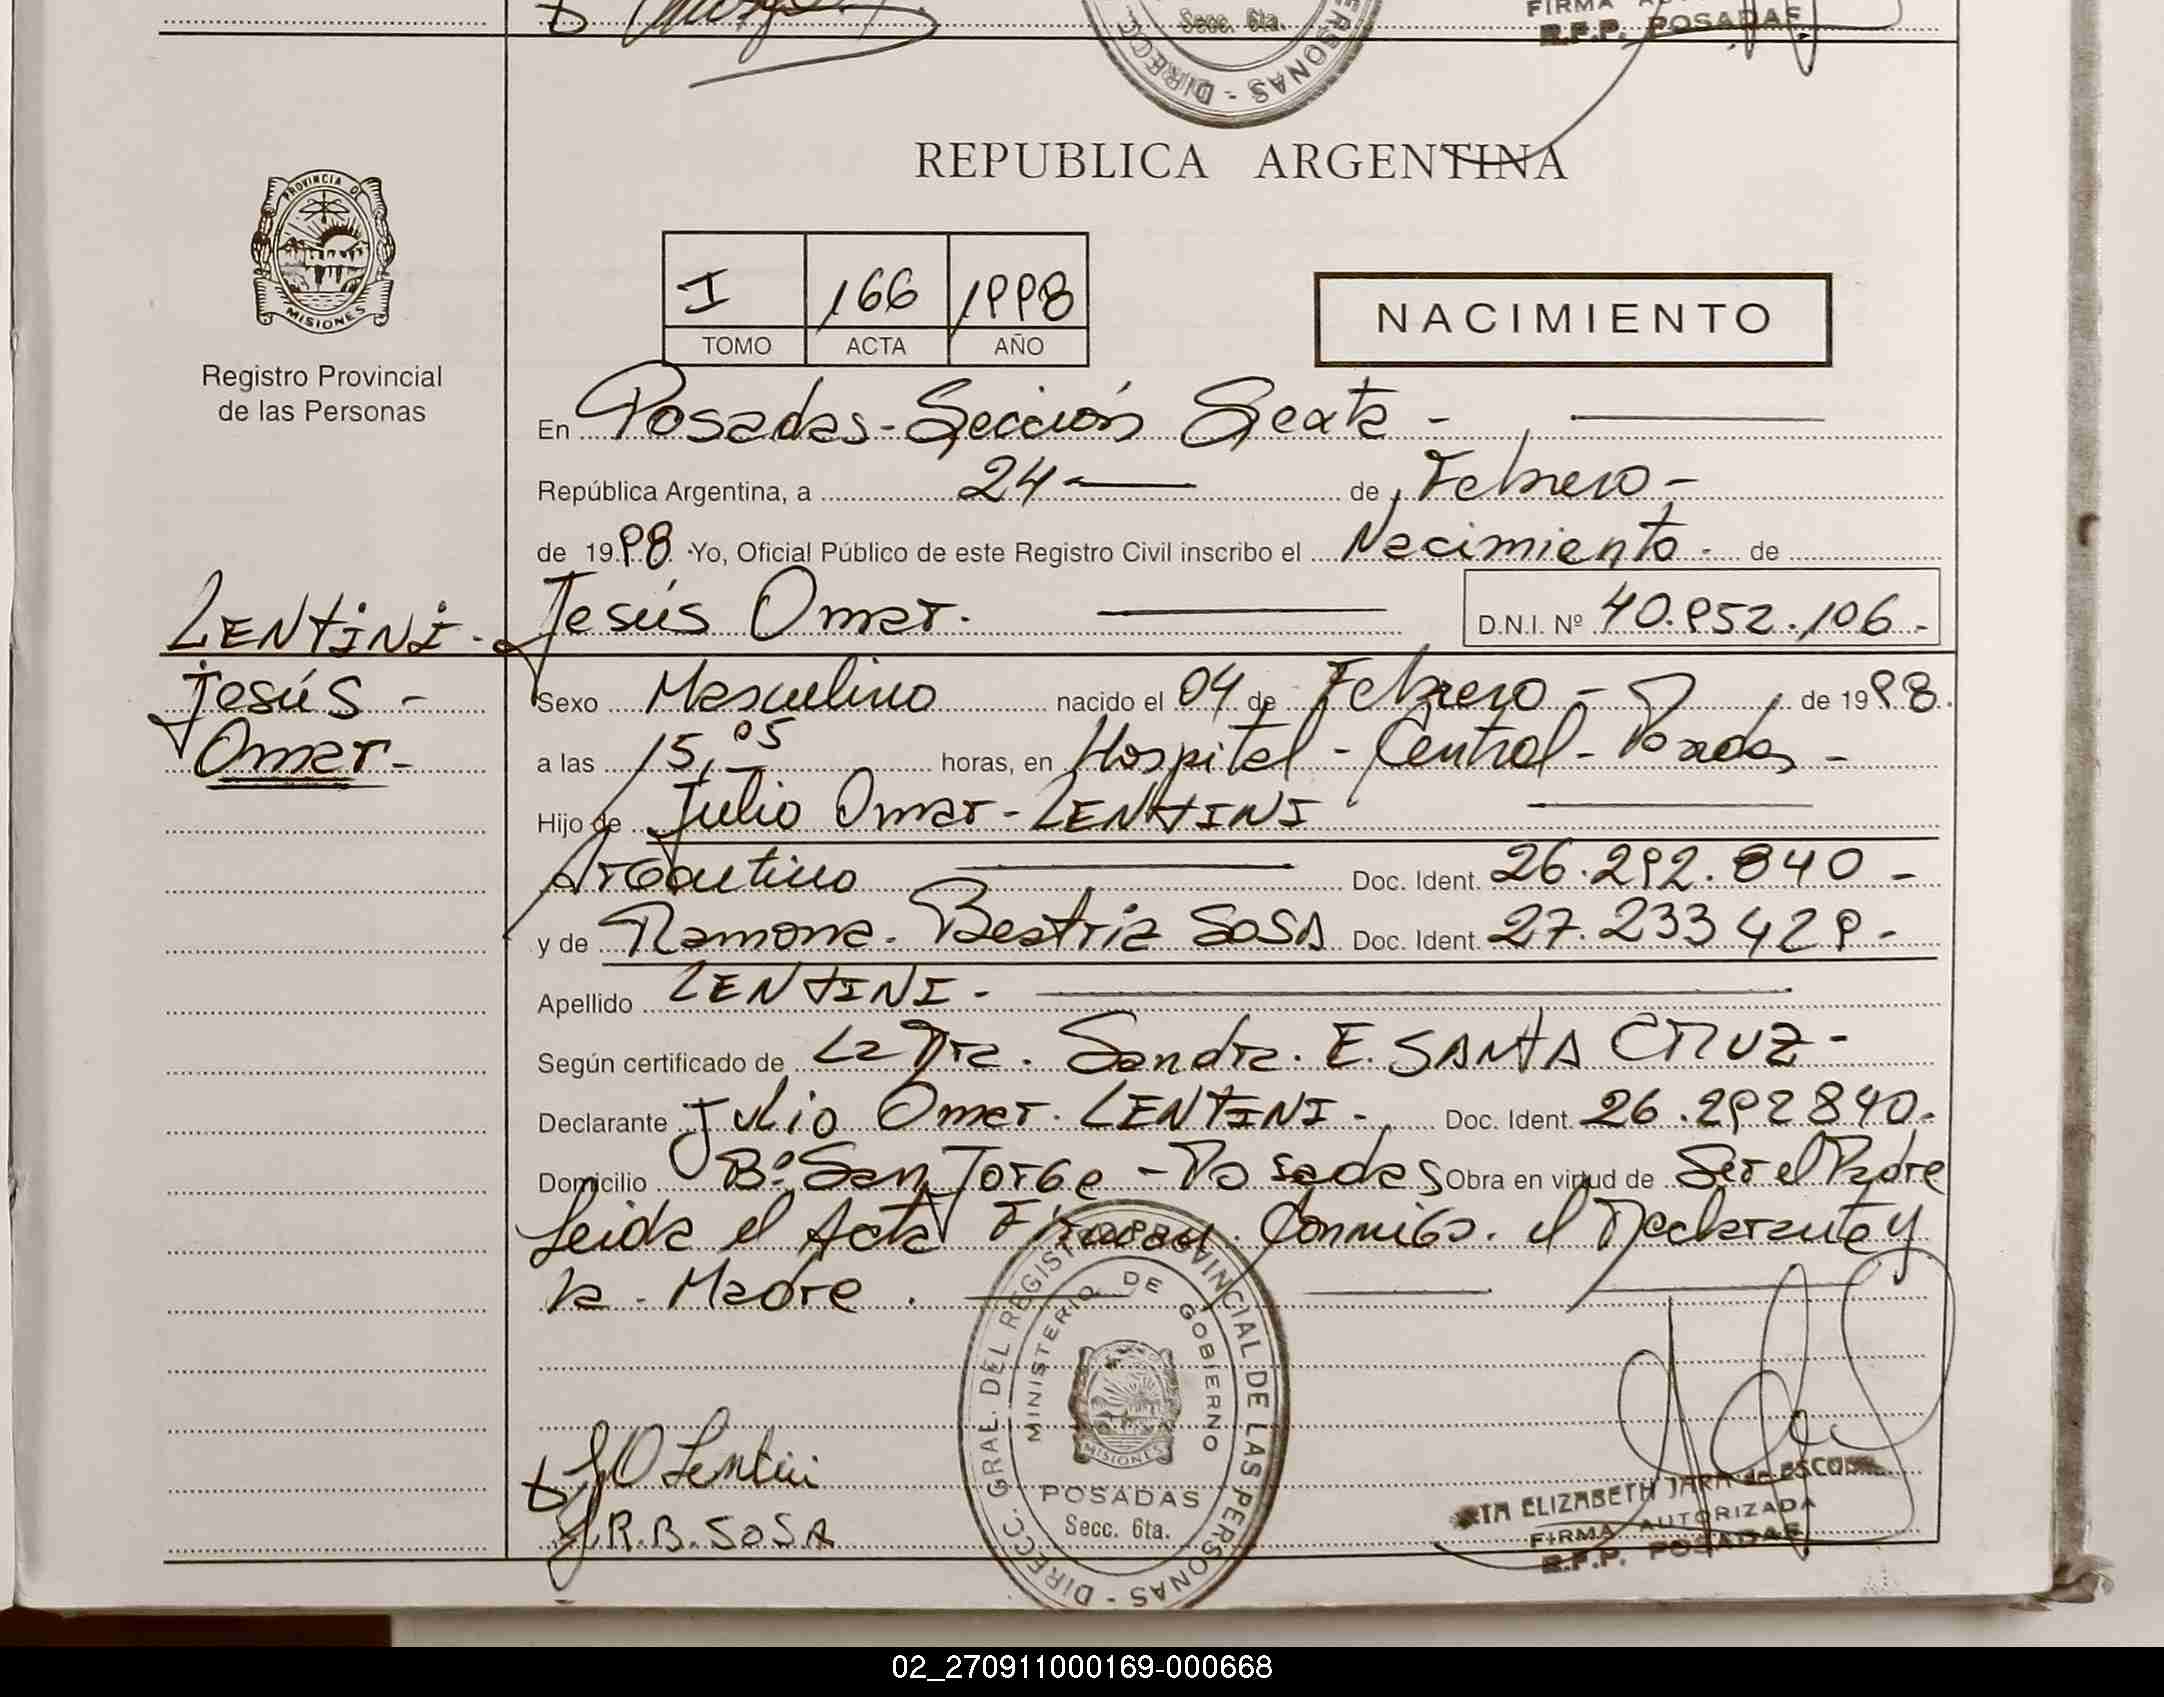 Secc. 6ta.
DIRECC
PERSONAS -
FIRMA
R.P.P. POSADAS
REPUBLICA ARGENTINA
PROVINCIA DE
MISIONES
Registro Provincial
de las Personas
I 166 1998
TOMO ACTA AÑO
NACIMIENTO
En Posadas - Sección Sexta -
República Argentina, a 24 de Febrero -
de 1998 Yo, Oficial Público de este Registro Civil inscribo el Nacimiento - de
Jesús Omar. D.N.I. Nº 40.952.106.-
LENTINI -
Jesús -
Omar -
Sexo Masculino nacido el 04 de Febrero - de 1998.
a las 15,05 horas, en Hospital - Central - Posadas -
Hijo de Julio Omar - LENTINI
Argentino Doc. Ident. 26.292.840 -
y de Ramona. Beatriz SOSA Doc. Ident. 27.233429 -
Apellido LENTINI -
Según certificado de La Dra. Sandra. E. SANTA CRUZ -
Declarante Julio Omar. LENTINI - Doc. Ident. 26.292840-
Domicilio Bº San Jorge - Posadas Obra en virtud de Ser el Padre
Leida el Acta Firman Conmigo. el Declarante y
la - Madre.
DIRECC. GRAL. DEL REGISTRO PROVINCIAL DE LAS PERSONAS -
MINISTERIO DE GOBIERNO
MISIONES
POSADAS
Secc. 6ta.
J O Lentini
R.B. SOSA
ELIZABETH JARA de
FIRMA AUTORIZADA
R.P.P. POSADAS
02_270911000169-000668